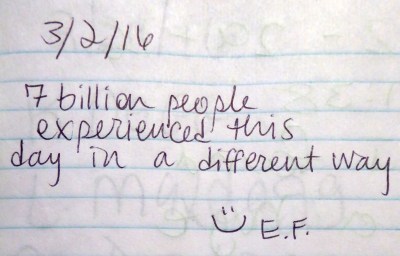 3/2/16
7 billion people
experienced this
day in a different way
E.F.